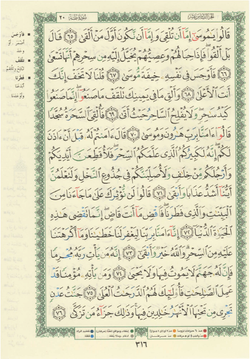 قَالُوا۟ يَٰمُوسَىٰٓ إِمَّآ أَن تُلْقِىَ وَإِمَّآ أَن نَّكُونَ أَوَّلَ مَنْ أَلْقَىٰ ٦٥ قَالَ
بَلْ أَلْقُوا۟ فَإِذَا حِبَالُهُمْ وَعِصِيُّهُمْ يُخَيَّلُ إِلَيْهِ مِن سِحْرِهِمْ أَنَّهَا تَسْعَىٰ
٦٦ فَأَوْجَسَ فِى نَفْسِهِۦ خِيفَةً مُّوسَىٰ ٦٧ قُلْنَا لَا تَخَفْ إِنَّكَ
أَنتَ ٱلْأَعْلَىٰ ٦٨ وَأَلْقِ مَا فِى يَمِينِكَ تَلْقَفْ مَا صَنَعُوٓا۟ إِنَّمَا صَنَعُوا۟
كَيْدُ سَٰحِرٍ وَلَا يُفْلِحُ ٱلسَّاحِرُ حَيْثُ أَتَىٰ ٦٩ فَأُلْقِىَ ٱلسَّحَرَةُ سُجَّدًا
قَالُوٓا۟ ءَامَنَّا بِرَبِّ هَٰرُونَ وَمُوسَىٰ ٧٠ قَالَ ءَامَنتُمْ لَهُۥ قَبْلَ أَنْ ءَاذَنَ
لَكُمْ إِنَّهُۥ لَكَبِيرُكُمُ ٱلَّذِى عَلَّمَكُمُ ٱلسِّحْرَ فَلَأُقَطِّعَنَّ أَيْدِيَكُمْ
وَأَرْجُلَكُم مِّنْ خِلَٰفٍ وَلَأُصَلِّبَنَّكُمْ فِى جُذُوعِ ٱلنَّخْلِ وَلَتَعْلَمُنَّ
أَيُّنَآ أَشَدُّ عَذَابًا وَأَبْقَىٰ ٧١ قَالُوا۟ لَن نُّؤْثِرَكَ عَلَىٰ مَا جَآءَنَا مِنَ
ٱلْبَيِّنَٰتِ وَٱلَّذِى فَطَرَنَا فَٱقْضِ مَآ أَنتَ قَاضٍ إِنَّمَا تَقْضِى هَٰذِهِ
ٱلْحَيَوٰةَ ٱلدُّنْيَآ ٧٢ إِنَّآ ءَامَنَّا بِرَبِّنَا لِيَغْفِرَ لَنَا خَطَٰيَٰنَا وَمَآ أَكْرَهْتَنَا
عَلَيْهِ مِنَ ٱلسِّحْرِ وَٱللَّهُ خَيْرٌ وَأَبْقَىٰٓ ٧٣ إِنَّهُۥ مَن يَأْتِ رَبَّهُۥ مُجْرِمًا
فَإِنَّ لَهُۥ جَهَنَّمَ لَا يَمُوتُ فِيهَا وَلَا يَحْيَىٰ ٧٤ وَمَن يَأْتِهِۦ مُؤْمِنًا قَدْ
عَمِلَ ٱلصَّٰلِحَٰتِ فَأُو۟لَٰٓئِكَ لَهُمُ ٱلدَّرَجَٰتُ ٱلْعُلَىٰ ٧٥ جَنَّٰتُ عَدْنٍ
تَجْرِى مِن تَحْتِهَا ٱلْأَنْهَٰرُ خَٰلِدِينَ فِيهَا وَذَٰلِكَ جَزَآءُ مَن تَزَكَّىٰ ٧٦
٣١٦